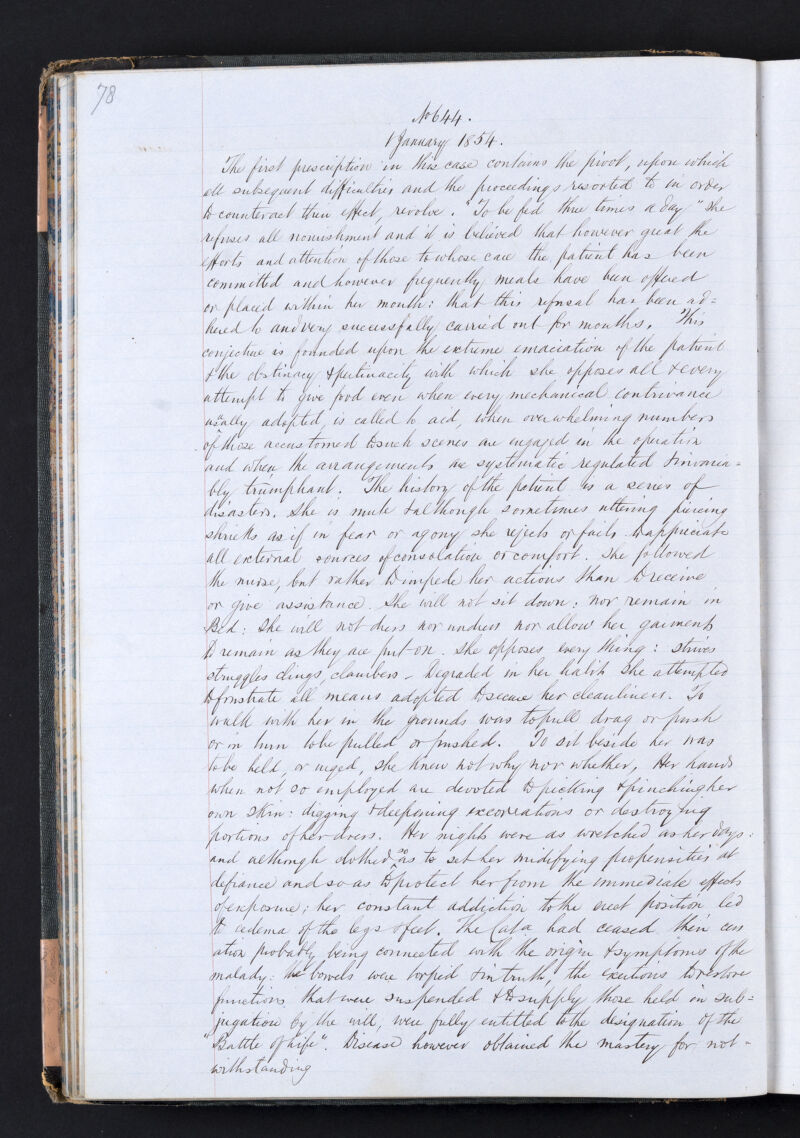 78
No 644.
1 January 1854.
The first prescription in this case contains the pivot, upon which
all subsequent difficulties and the proceedings resorted to in order
to counteract their effect, revolve. "To be fed three times a day" She
refuses all nourishment and it is believed that however great the
efforts and attention of those to whose care the patient has been
committed and however frequently meals have been offered
or placed within her mouth: that this refusal has been ad=
hered to and very successfully carried out for months. This
conjecture is founded upon the extreme emaciation of the patient
& the obstinacy & pertinacity with which she opposes all & every
attempt to give food even when every mechanical contrivance
usually adopted, is called to aid, when overwhelming numbers
of those accustomed to such scenes are engaged in the operation
and when the arrangements are systematic regulated & invaria=
bly triumphant. The history of the patient is a series of
disasters. She is mute & although sometimes uttering piercing
shrieks as if in fear or agony she rejects or fails to appreciate
all external sources of consolation or comfort. She followed
the nurse, but rather to impede her actions than to receive
or give assistance. She will not sit down; nor remain in
Bed: She will not dress nor undress nor allow her garments
to remain as they are put on. She opposes every thing: strives
struggles clings, clambers - Degraded in her habits She attempted
to frustrate all means adopted to secure her cleanliness. To
walk with her in the grounds was to pull drag or push
or in turn to be pulled or pushed. To sit beside her was
to be held, or urged, she knew not why nor whether, Her hands
when not so employed are devoted to picking & pinching her
own skin: digging & deepening excoreations or destroying
portions of her dress. Her nights were as wretched as her days:
and although clothed so as to set her nudifying propensities at
defiance and so as to protect her from the immediate effects
of exposure; her constant addiction to the erect position led
to œdema of the legs & feet. The Cata had ceased their cess
ation probably being connected with the origin & symptoms of the
malady: the bowels were torpid & in truth, the exertions to restore
functions that were suspended & to supply those held in sub=
jugation by the will, were fully entitled to the designation of the
"Battle of life". Disease however obtained the mastery for not-
withstanding